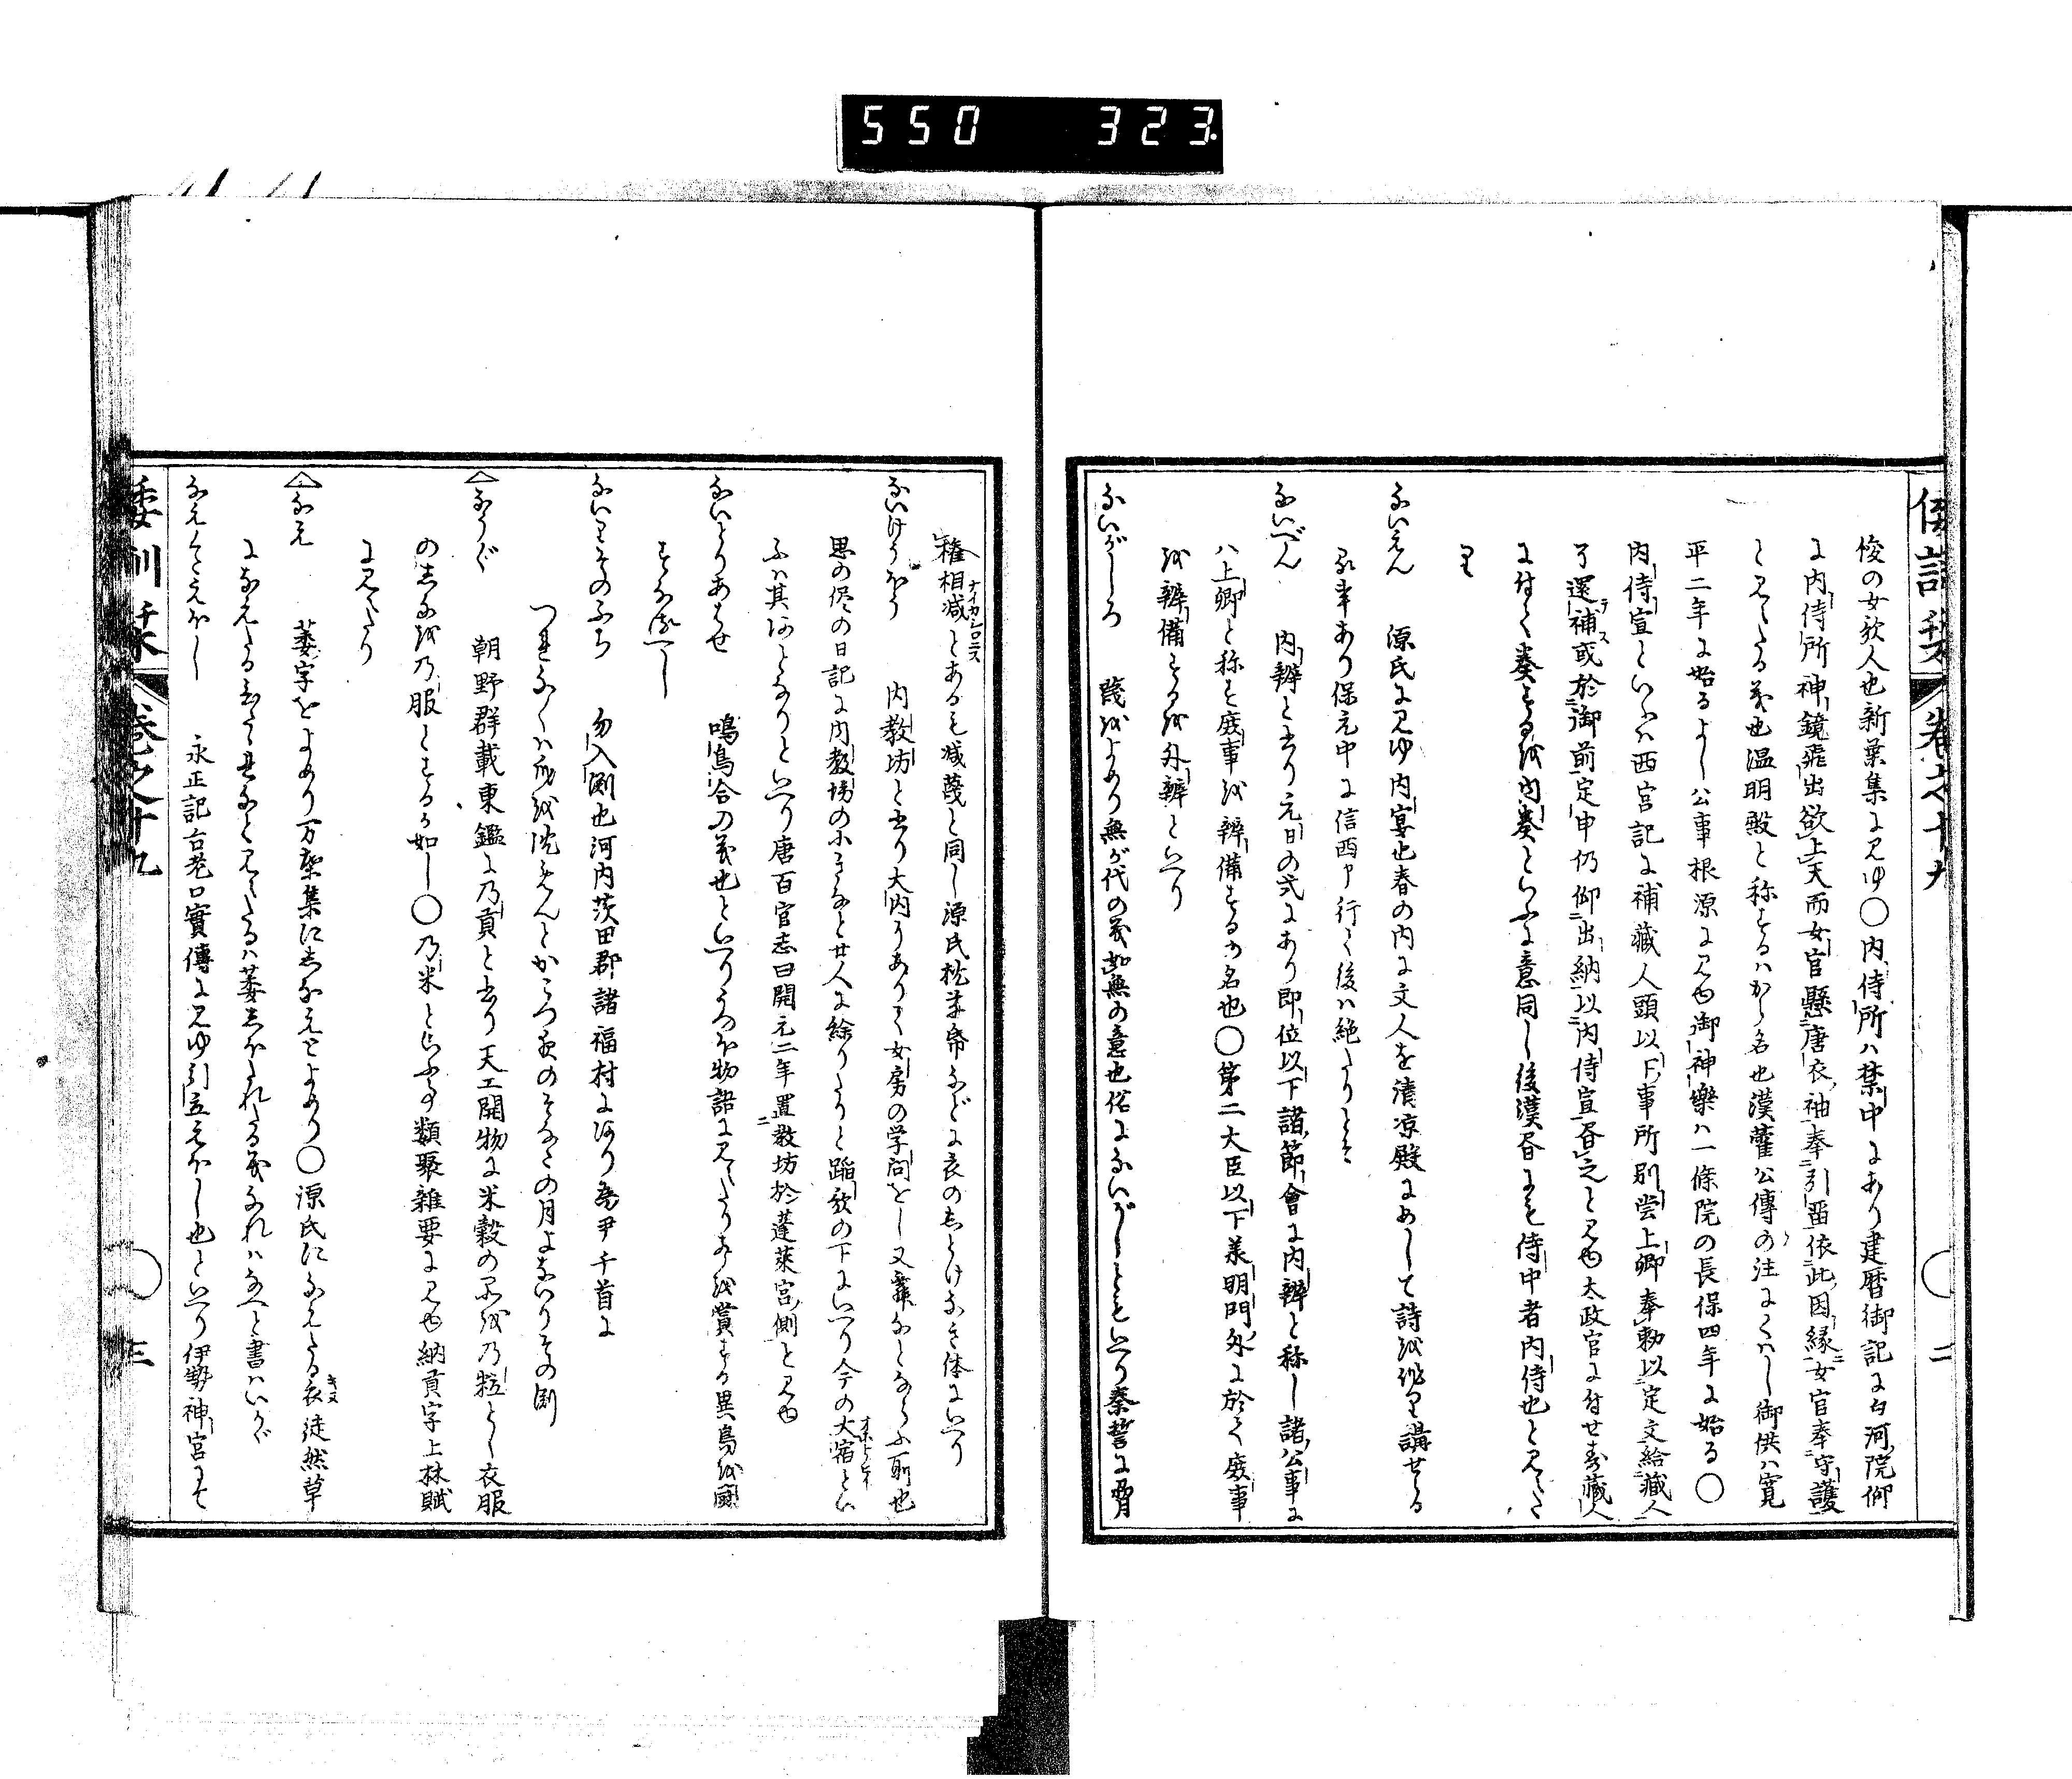 550 323
俊の女歌人也新葉集にみゆ〇内侍所ハ禁中にあり建暦御記に白河院仰
に内侍所神鏡飛出欲上天而女官懸唐衣袖奉引留依此因縁女官奉守護
とみえたる義也温明殿と称するハから名也漢霍公傳の注にくハし御供ハ寛
平二年に始るよし公事根源にみゆ御神樂ハ一條院の長保四年に始る〇
内侍宣といふハ西宮記に補藏人頭以下事所別當上卿奉勅以定文給藏人
了還補或於御前定申仍仰出納以内侍宣書之とみゆ太政官に付せす藏人
に付て奏するを内奏といふに意同し後漢書にも侍中者内侍也とみえた
り
ないえん 源氏にみゆ内宴也春の内に文人を清凉殿にめして詩を作り講せる
る事あり保元中に信西申行て後ハ絶たりとそ
ないべん 内辨と書り元日の式にあり即位以下諸節會に内辨と称し諸公事に
ハ上卿と称す庭事を辨備するの名也〇第二大臣以下羕明門外に於て庭事
を辨備するを外辨といへり
ないがしろ 蔑をよめり無が代の義如無の意也俗にないがしともいへり秦誓に胥
権相減ナイカシロニスとあるも滅蔑と同し源氏枕草帋などに衣のしとけなき体にいへり
ないけうばう 内教坊と書り大内にありて女房の学問をし又舞なとならふ所也
思の侭の日記に内教坊の小さなと廿人に餘りたりと蹈歌の下にいへり今の大宿とい
ふハ其河となりといへり唐百官志曰開元二年置教坊於蓬莱宮側とみゆ
ないとりあはせ 鳴鳥合の義也といへりうつほ物語にみえたり声を賞する異鳥を
すなるへし
ないりそのふち 勿入淵也河内茨田郡諸福村にあり為尹千首に
つれなくハ身を沈めんとかこつ夜のそなたの月よないりその淵
なうぐ 朝野群載東鑑に乃貢と書り天工開物に米穀の不を乃粒とし衣服
の志なを乃服とするか如し〇乃米といふ事類聚雜要にみゆ納貢字上林賦
にみえたり
なえ 萎字をよめり万葉集にしなえとよめり〇源氏になえたる衣徒然草
になえたるひたたれなとみえたるハ萎しほたれたる義なれハなへと書ハいかゞ
なえくえなし 永正記古老口實傳にみゆ引立えなし也といへり伊勢神宮にて
倭訓栞 巻之十九 二
倭訓栞 巻之十九 三